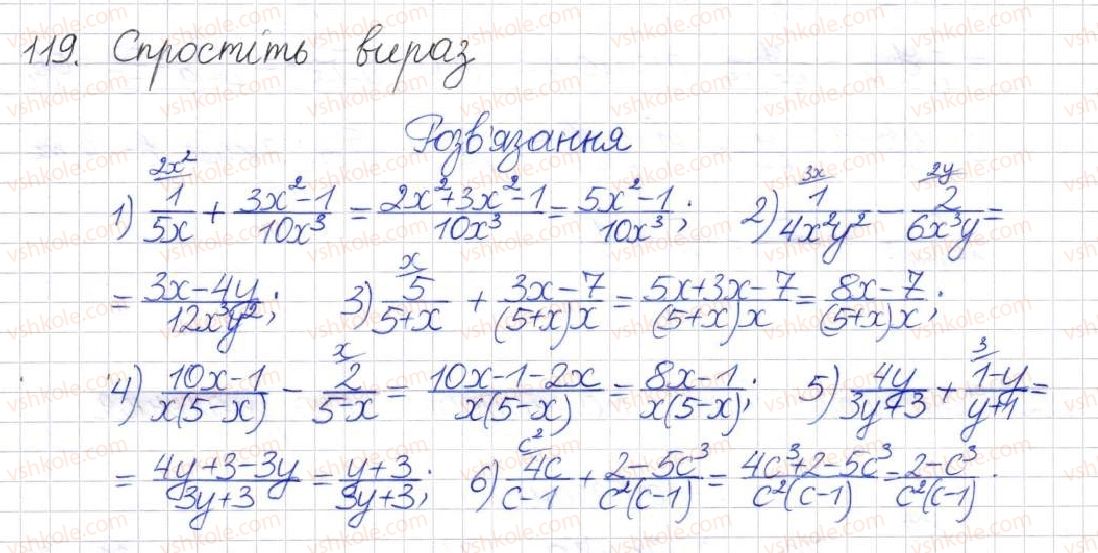 119. Спростіть вираз
Розв'язання
1) 2x²/ 1/5x + (3x²-1)/(10x³) = (2x²+3x²-1)/(10x³) = (5x²-1)/(10x³); 2) 3x/ 1/(4x²y²) - 2y/ 2/(6x³y) =
= (3x-4y)/(12x³y²); 3) x/ 5/(5+x) + (3x-7)/((5+x)x) = (5x+3x-7)/((5+x)x) = (8x-7)/((5+x)x);
4) (10x-1)/(x(5-x)) - x/ 2/(5-x) = (10x-1-2x)/(x(5-x)) = (8x-1)/(x(5-x)); 5) 4y/(3y+3) + 3/ (1-y)/(y+1) =
= (4y+3-3y)/(3y+3) = (y+3)/(3y+3); 6) c²/ 4c/(c-1) + (2-5c³)/(c²(c-1)) = (4c³+2-5c³)/(c²(c-1)) = (2-c³)/(c²(c-1)).